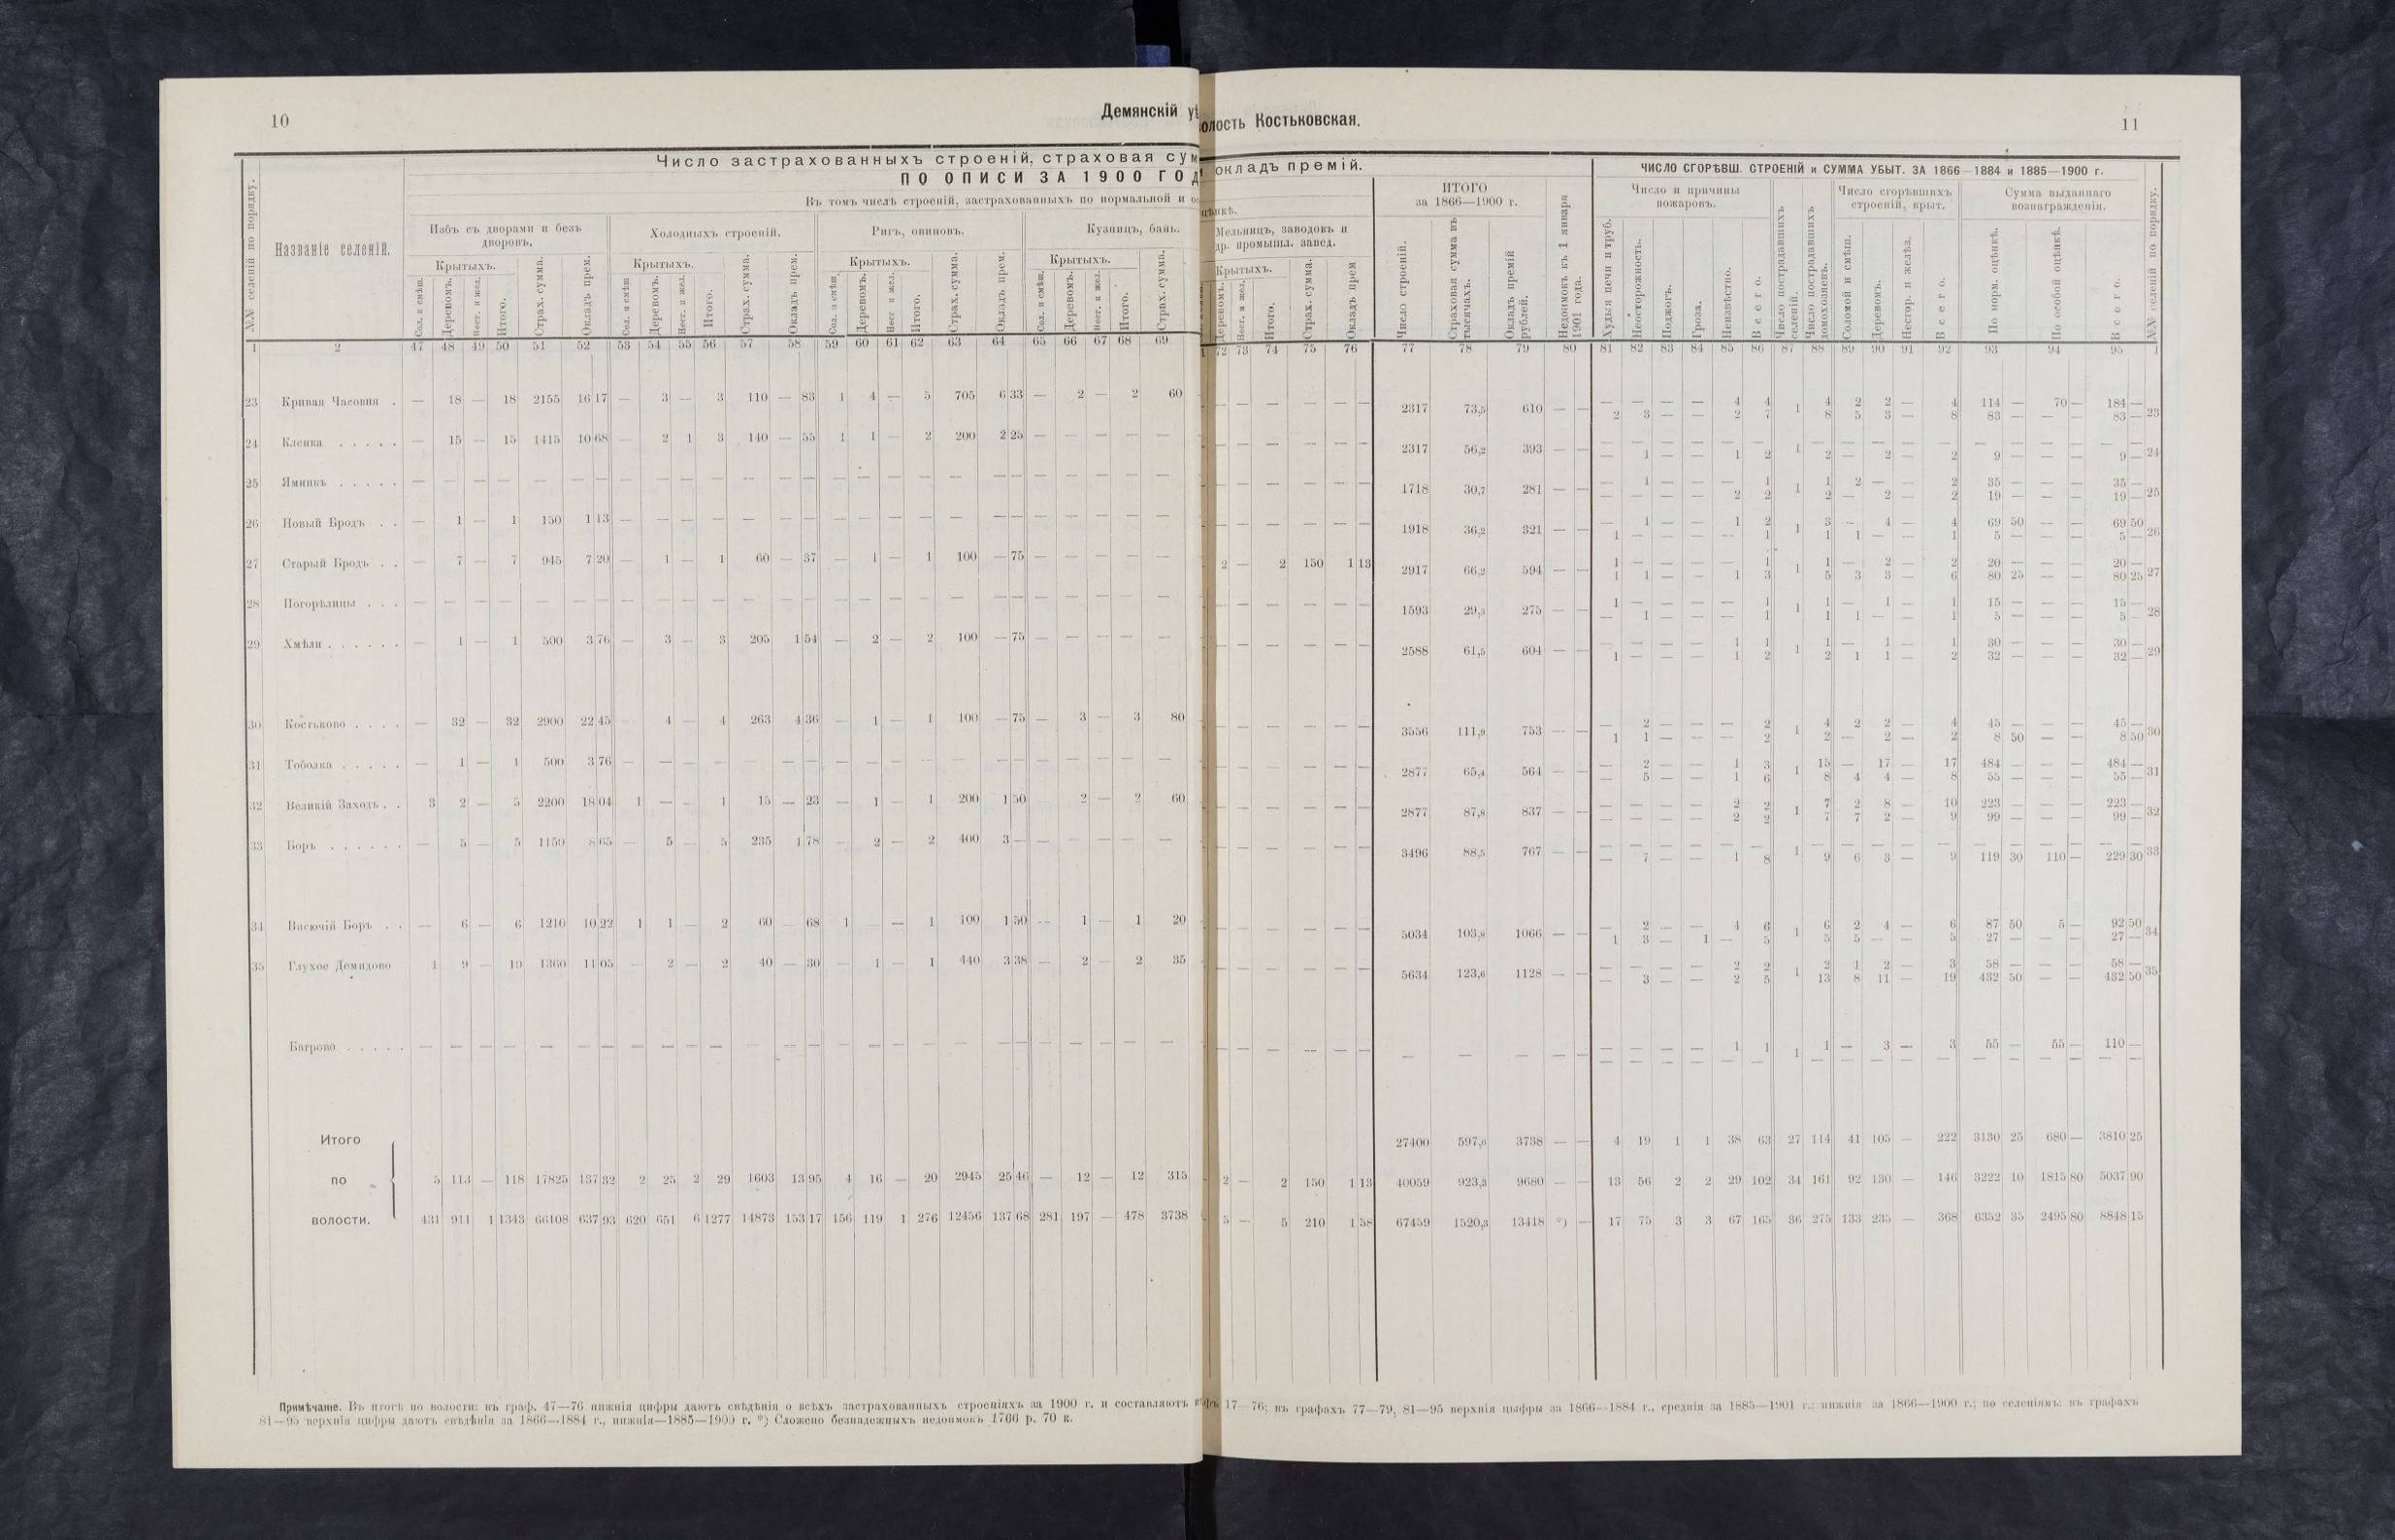 10
Демянскій уѣ
олость Костьковская.
11
Число застрахованныхъ строеній, страховая сум
окладъ премій.
ПО ОПИСИ ЗА 1900 ГОД
Въ томъ числѣ строеній, застрахованныхъ по нормальной и о
цѣнкѣ.
ЧИСЛО СГОРѢВШ. СТРОЕНІЙ и СУММА УБЫТ. ЗА 1866—1884 и 1885—1900 г.
№№ селеній по порядку.
Названіе селеній.
Избъ съ дворами и безъ дворовъ.
Холодныхъ строеній.
Ригъ, овиновъ.
Кузницъ, бань.
Мельницъ, заводовъ и др. промышл. завед.
ИТОГО за 1866—1900 г.
Недоимокъ къ 1 января 1901 года.
Число и причины пожаровъ.
Число пострадавшихъ селеній.
Число пострадавшихъ домохозяевъ.
Число сгорѣвшихъ строеній, крыт.
Сумма выданнаго вознагражденія.
№№ селеній по порядку.
Крытыхъ. Крытыхъ. Крытыхъ. Крытыхъ. Крытыхъ.
Сол. и смѣш. Деревомъ. Несг. и жел. Итого. Страх. сумма. Окладъ прем.
Сол. и смѣш Деревомъ. Несг. и жел. Итого. Страх. сумма. Окладъ прем.
Сол. и смѣш. Деревомъ. Несг и жел. Итого. Страх. сумма. Окладъ прем.
Сол. и смѣш. Деревомъ. Несг. и жел. Итого. Страх. сумма.
Деревомъ. Несг. и жел. Итого. Страх. сумма. Окладъ прем
Число строеній. Страховая сумма въ тысячахъ. Окладъ премій рублей.
Худыя печи и труб. Неосторожность. Поджогъ. Гроза. Неизвѣстно. Всего.
Соломой и смѣш. Деревомъ. Несгор. и желѣз. Всего.
По норм. оцѣнкѣ. По особой оцѣнкѣ. Всего.
1 2 47 48 49 50 51 52 53 54 55 56 57 58 59 60 61 62 63 64 65 66 67 68 69 72 73 74 75 76 77 78 79 80 81 82 83 84 85 86 87 88 89 90 91 92 93 94 95 1
23 Кривая Часовня . — 18 — 18 2155 16 17 — 3 — 3 110 — 83 1 4 — 5 705 6 33 — 2 — 2 60 — — — — — — 2317 73,5 610 — — — — — — 4 4 1 4 2 2 — 4 114 — 70 — 184 — 23
2 3 — — 2 7 8 5 3 — 8 83 — — — 83 —
24 Кленка . . . . . — 15 — 15 1415 10 68 — 2 1 3 140 — 55 1 1 — 2 200 2 25 — — — — — — — — — — — 2317 56,2 393 — — — — — — — — 1 — — — — — — — — — — — 24
— 1 — — 1 2 2 — 2 — 2 9 — — — 9 —
25 Ямникъ . . . . . — — — — — — — — — — — — — — — — — — — — — — — — — — — — — — — — 1718 30,7 281 — — — 1 — — — 1 1 1 2 — — 2 35 — — — 35 — 25
— — — — 2 2 2 — 2 — 2 19 — — — 19 —
26 Новый Бродъ . . — 1 — 1 150 1 13 — — — — — — — — — — — — — — — — — — — — — — — — — 1918 36,2 321 — — — 1 — — 1 2 1 3 — 4 — 4 69 50 — — 69 50 26
1 — — — — 1 1 1 — — 1 5 — — — 5 —
27 Старый Бродъ . . — 7 — 7 945 7 20 — 1 — 1 60 — 37 — 1 — 1 100 — 75 — — — — — 2 — 2 150 1 13 2917 66,2 594 — — 1 — — — — 1 1 1 — 2 — 2 20 — — — 20 — 27
1 1 — — 1 3 5 3 3 — 6 80 25 — — 80 25
28 Погорѣлицы . . . — — — — — — — — — — — — — — — — — — — — — — — — — — — — — — — — 1593 29,3 275 — — 1 — — — — 1 1 1 — 1 — 1 15 — — — 15 — 28
— 1 — — — 1 1 1 — — 1 5 — — — 5 —
29 Хмѣли . . . . . . — 1 — 1 500 3 76 — 3 — 3 205 1 54 — 2 — 2 100 — 75 — — — — — — — — — — — 2588 61,5 604 — — — — — — 1 1 1 1 — 1 — 1 30 — — — 30 — 29
1 — — — 1 2 2 1 1 — 2 32 — — — 32 —
30 Костьково . . . . — 32 — 32 2900 22 45 — 4 — 4 263 4 36 — 1 — 1 100 — 75 — 3 — 3 80 — — — — — — 3556 111,9 753 — — — 2 — — — 2 1 4 2 2 — 4 45 — — — 45 — 30
1 1 — — — 2 2 — 2 — 2 8 50 — — 8 50
31 Тоболка . . . . . — 1 — 1 500 3 76 — — — — — — — — — — — — — — — — — — — — — — — — — 2877 65,4 564 — — — 2 — — 1 3 1 15 — 17 — 17 484 — — — 484 — 31
— 5 — — 1 6 8 4 4 — 8 55 — — — 55 —
32 Великій Заходъ . . 3 2 — 5 2200 18 04 1 — — 1 15 — 23 — 1 — 1 200 1 50 2 — 2 60 — — — — — — 2877 87,8 837 — — — — — — 2 2 1 7 2 8 — 10 223 — — — 223 — 32
— — — — 2 2 7 7 2 — 9 99 — — — 99 —
33 Боръ . . . . . . — 5 — 5 1150 8 65 — 5 — 5 235 1 78 — 2 — 2 400 3 — — — — — — — — — — — — 3496 88,5 767 — — — — — — — — 1 — — — — — — — — — — — 33
— 7 — — 1 8 9 6 3 — 9 119 30 110 — 229 30
34 Висючій Боръ . . — 6 — 6 1210 10 22 1 1 — 2 60 — 68 1 — 1 100 1 50 — 1 — 1 20 — — — — — — 5034 103,8 1066 — — — 2 — — 4 6 1 6 2 4 — 6 87 50 5 — 92 50 34
1 3 — 1 — 5 5 5 — — 5 27 — — — 27 —
35 Глухое Демидово 1 9 — 10 1360 11 05 — 2 — 2 40 — 30 — 1 — 1 440 3 38 — 2 — 2 35 — — — — — — 5634 123,6 1128 — — — — — — 2 2 1 2 1 2 — 3 58 — — — 58 — 35
— 3 — — 2 5 13 8 11 — 19 432 50 — — 432 50
Багрово . . . . . — — — — — — — — — — — — — — — — — — — — — — — — — — — — — — — — — — — — — — — — — 1 1 1 1 — 3 — 3 55 — 55 — 110 —
Итого 27400 597,0 3738 — — 4 19 1 1 38 63 27 114 41 105 — 222 3130 25 680 — 3810 25
по 5 113 — 118 17825 137 32 2 25 2 29 1603 13 95 4 16 — 20 2945 25 46 — 12 — 12 315 2 — 2 150 1 13 40059 923,3 9680 — — 13 56 2 2 29 102 34 161 92 130 — 146 3222 10 1815 80 5037 90
волости. 431 911 1 1343 66108 637 93 620 651 6 1277 14873 153 17 156 119 1 276 12456 137 68 281 197 — 478 3738 5 — 5 210 1 58 67459 1520,3 13418 *) — 17 75 3 3 67 165 36 275 133 235 — 368 6352 35 2495 80 8848 15
Примѣчаніе. Въ итогѣ по волости: въ граф. 47—76 нижнія цифры даютъ свѣдѣнія о всѣхъ застрахованныхъ строеніяхъ за 1900 г. и составляютъ 17—76; въ графахъ 77—79, 81—95 верхнія цифры за 1866—1884 г., среднія за 1885—1901 г.; нижнія за 1866—1900 г.; по селеніямъ: въ графахъ
81—95 верхнія цифры даютъ свѣдѣнія за 1866—1884 г., нижнія—1885—1900 г. *) Сложено безнадежныхъ недоимокъ 1766 р. 70 к.